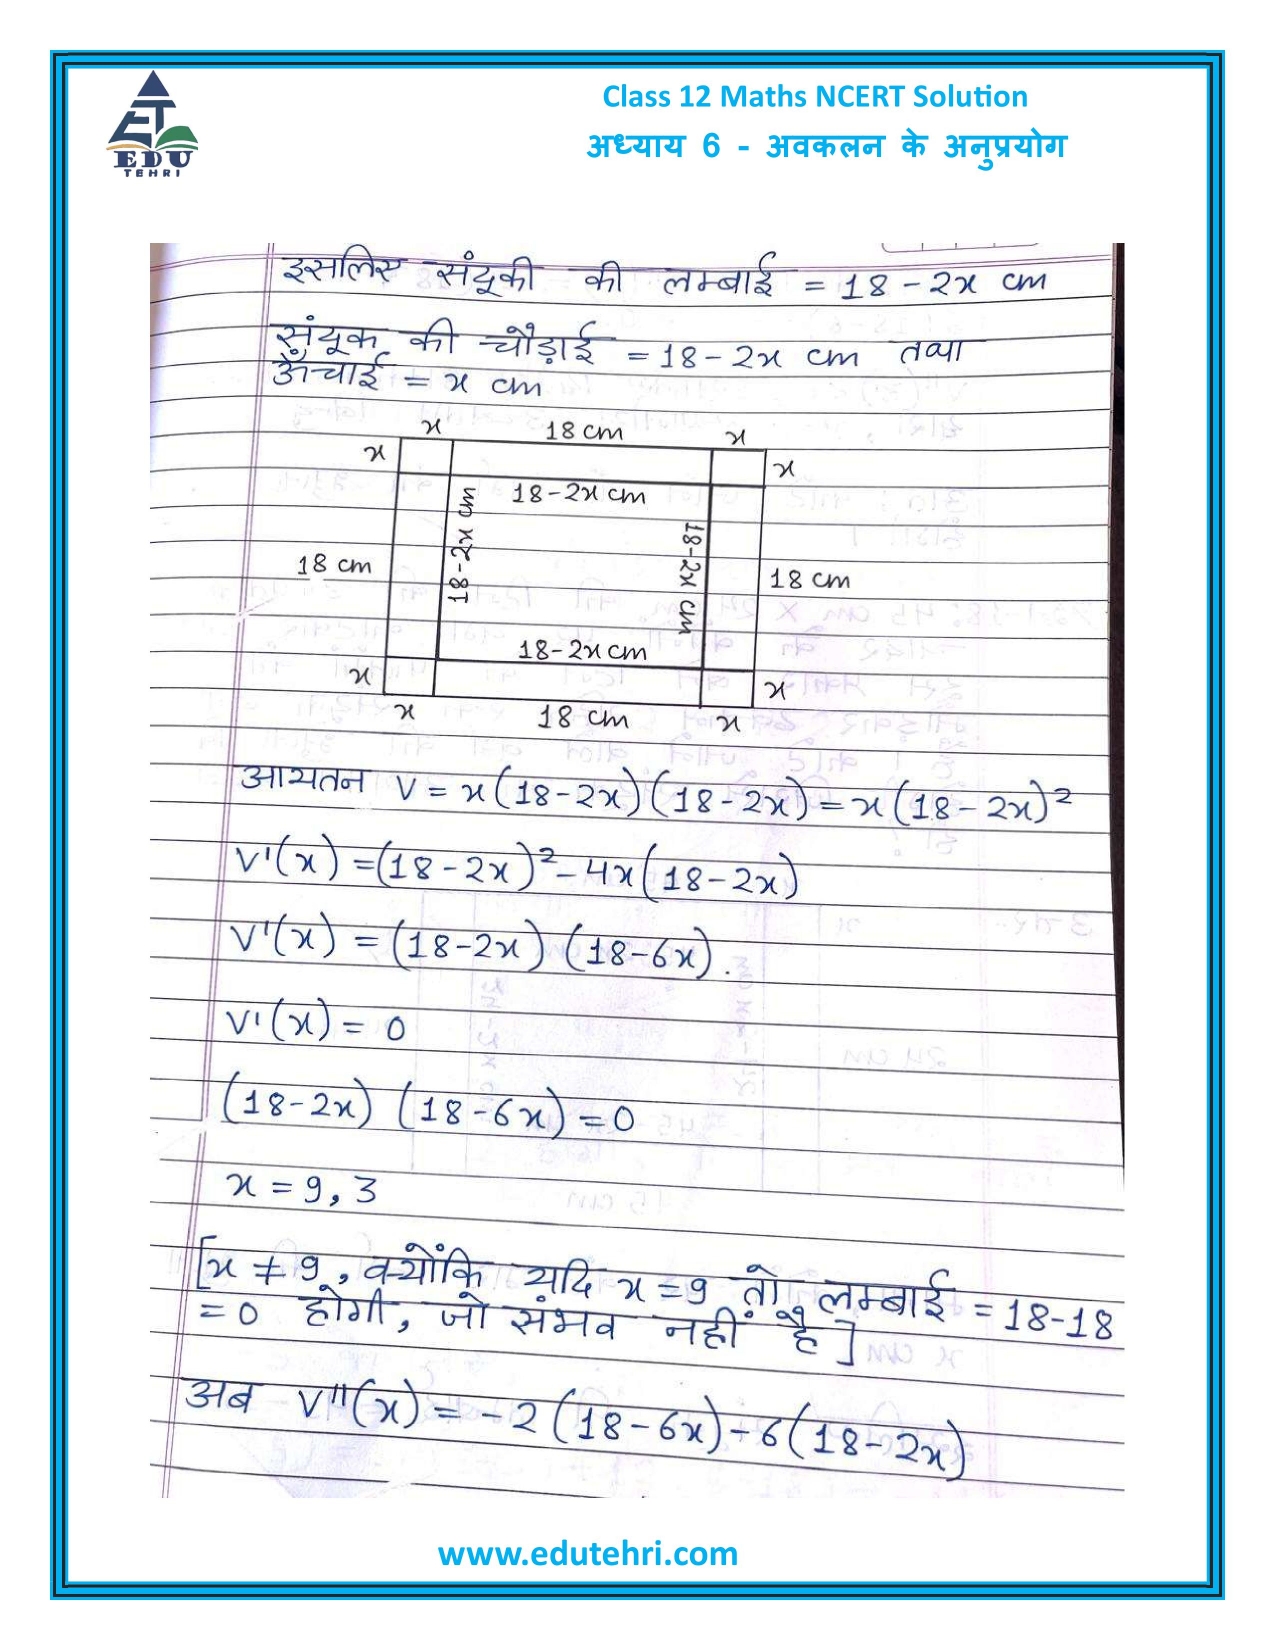 ET
EDU
TEHRI
Class 12 Maths NCERT Solution
अध्याय 6 - अवकलन के अनुप्रयोग
इसलिए संदूकी की लम्बाई = 18 - 2x cm
संदूक की चौड़ाई = 18 - 2x cm तथा
ऊँचाई = x cm
x 18 cm x
x x
18-2x cm
18-2x cm 18-2x cm
18 cm 18 cm
18-2x cm
x x
x 18 cm x
आयतन V = x(18-2x)(18-2x) = x(18-2x)²
V'(x) = (18-2x)² - 4x(18-2x)
V'(x) = (18-2x) (18-6x).
V'(x) = 0
(18-2x) (18-6x) = 0
x = 9, 3
[x ≠ 9, क्योंकि यदि x = 9 तो लम्बाई = 18-18
= 0 होगी, जो संभव नहीं है]
अब V''(x) = -2(18-6x)-6(18-2x)
www.edutehri.com